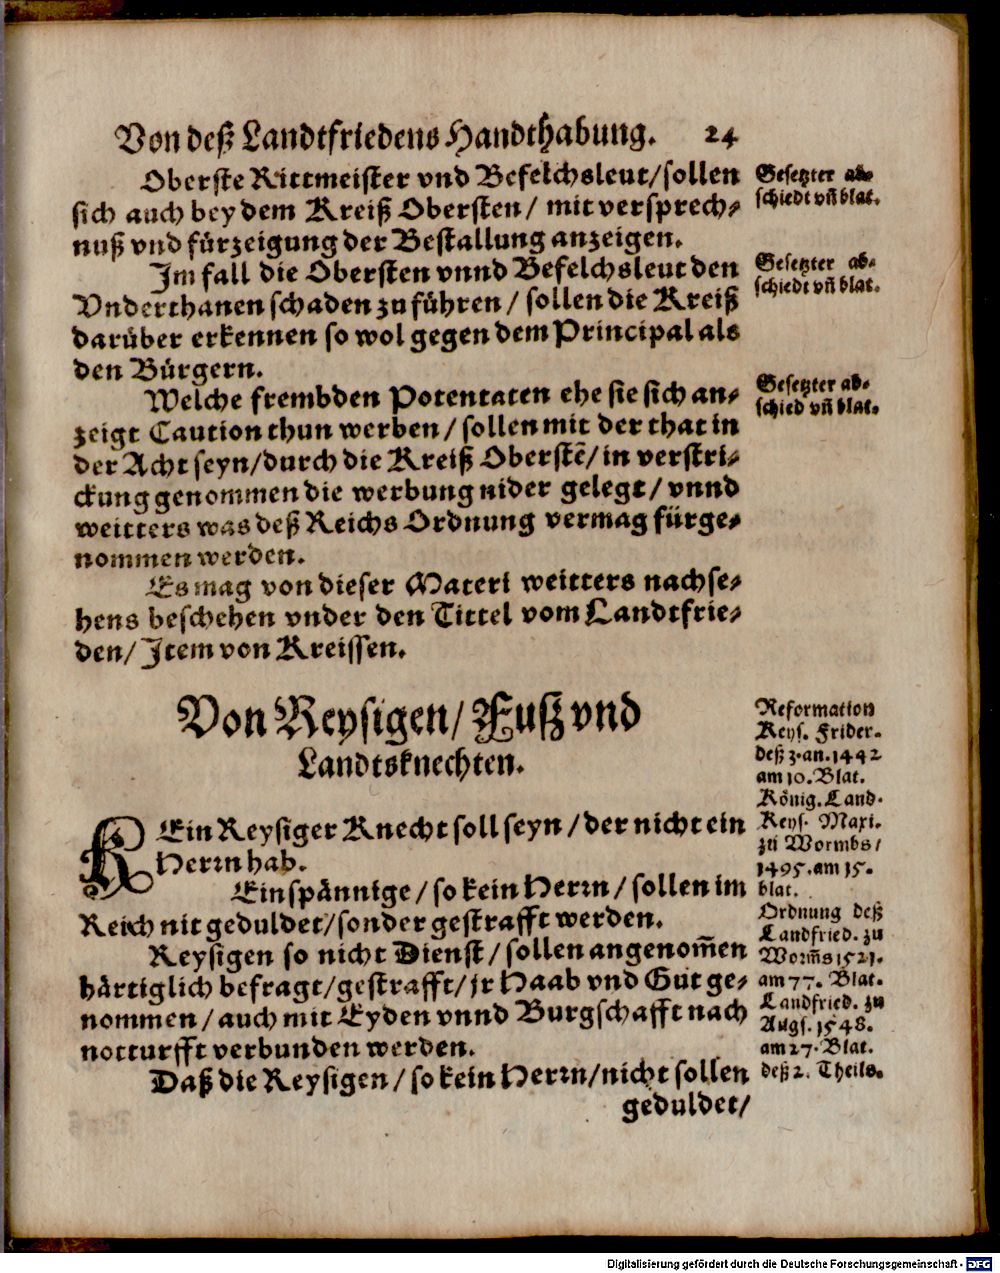 Von deß Landtfriedens Handthabung. 24
Oberste Rittmeister vnd Befelchsleut/sollen
sich auch bey dem Kreiß Obersten/ mit versprech-
nuß vnd fürzeigung der Bestallung anzeigen.
Im fall die Obersten vnnd Befelchsleut den
Vnderthanen schaden zu führen / sollen die Kreiß
darüber erkennen so wol gegen dem Principal als
den Bürgern.
Welche frembden Potentaten ehe sie sich an-
zeigt Caution thun werben / sollen mit der that in
der Acht seyn/durch die Kreiß Oberstē/ in verstri-
ckung genommen die werbung nider gelegt / vnnd
weitters was deß Reichs Ordnung vermag fürge-
nommen werden.
Es mag von dieser Materi weitters nachse-
hens beschehen vnder den Tittel vom Landtfrie-
den/ Item von Kreissen.
Gesetzter ab-
schiedt vñ blat.
Gesetzter ab-
schiedt vñ blat.
Gesetzter ab-
schied vñ blat.
Von Reysigen/ Fuß vnd
Landtsknechten.
KEin Reysiger Knecht soll seyn / der nicht ein
Herrn hab.
Einspännige / so kein Herrn / sollen im
Reich nit geduldet/sonder gestrafft werden.
Reysigen so nicht Dienst / sollen angenom̄en
härtiglich befragt/gestrafft/ jr Haab vnd Gut ge-
nommen / auch mit Eyden vnnd Burgschafft nach
notturfft verbunden werden.
Daß die Reysigen / so kein Herrn/nicht sollen
geduldet/
Reformation
Keys. Frider.
deß 3. an. 1442
am 10. Blat.
König. Land.
Keys. Maxi.
zu Wormbs/
1495. am 15.
blat.
Ordnung deß
Landfried. zu
Worm̄s 1521.
am 77. Blat.
Landfried. zu
Augs. 1548.
am 27. Blat.
deß 2. Theils.
Digitalisierung gefördert durch die Deutsche Forschungsgemeinschaft - DFG